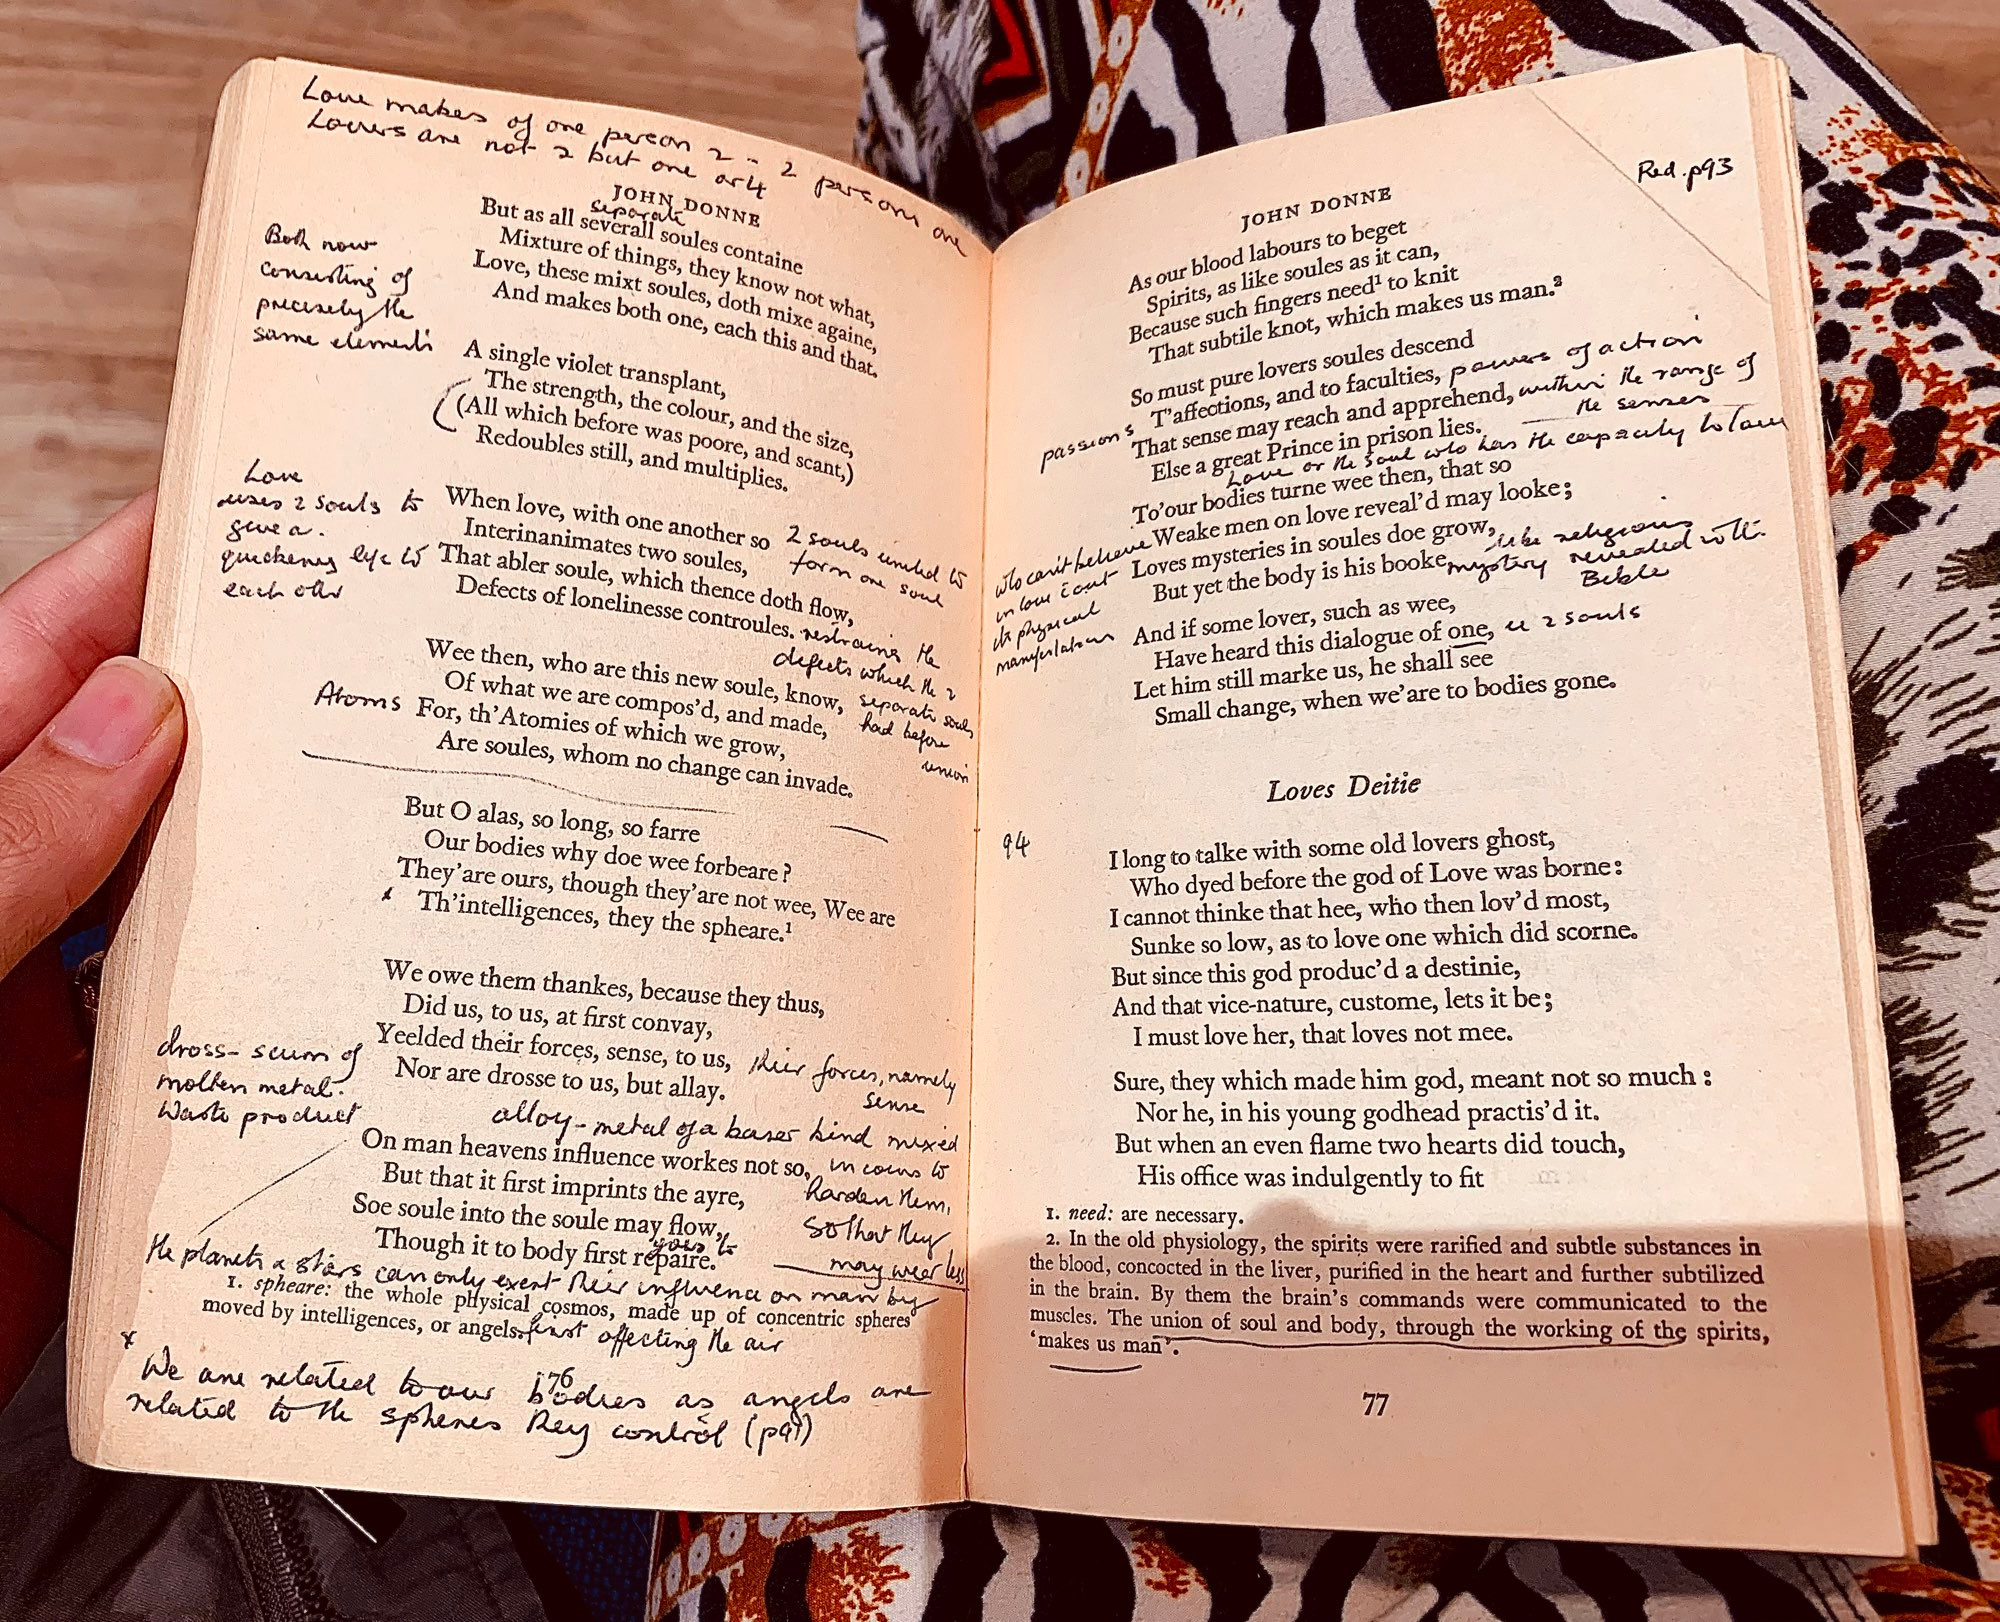 Love makes of one person 2 - 2 persons one
Lovers are not 2 but one or 4
JOHN DONNE
separate
But as all severall soules containe
Mixture of things, they know not what,
Love, these mixt soules, doth mixe againe,
And makes both one, each this and that.
Both now
consisting of
precisely the
same elements
A single violet transplant,
The strength, the colour, and the size,
(All which before was poore, and scant,)
Redoubles still, and multiplies.
Love
uses 2 souls to
give a
quickening life to
each other
When love, with one another so
Interinanimates two soules,
That abler soule, which thence doth flow,
Defects of lonelinesse controules.
2 souls united to
form one soul
restrains the
defects which the 2
separate souls
had before
union
Wee then, who are this new soule, know,
Of what we are compos'd, and made,
Atoms For, th'Atomies of which we grow,
Are soules, whom no change can invade.
But O alas, so long, so farre
Our bodies why doe wee forbeare?
They'are ours, though they'are not wee, Wee are
x Th'intelligences, they the spheare.¹
We owe them thankes, because they thus,
Did us, to us, at first convay,
Yeelded their forces, sense, to us, their forces, namely
sense
Nor are drosse to us, but allay.
dross - scum of
molten metal.
Waste product
alloy - metal of a baser kind mixed
in coins to
harden them,
so that they
may wear less
On man heavens influence workes not so,
But that it first imprints the ayre,
Soe soule into the soule may flow,
Though it to body first repaire.
goes to
The planets & stars can only exert their influence on man by
first affecting the air
1. spheare: the whole physical cosmos, made up of concentric spheres
moved by intelligences, or angels.
76
x We are related to our bodies as angels are
related to the spheres they control (p91)
Red. p93
JOHN DONNE
As our blood labours to beget
Spirits, as like soules as it can,
Because such fingers need¹ to knit
That subtile knot, which makes us man.²
So must pure lovers soules descend
T'affections, and to faculties, powers of action
passions
That sense may reach and apprehend, within the range of
the senses
Else a great Prince in prison lies.
Love or the soul who has the capacity to love
To'our bodies turne wee then, that so
Weake men on love reveal'd may looke;
Loves mysteries in soules doe grow,
But yet the body is his booke,
who can't believe
in love without
its physical
manifestations
like religious
mystery revealed with
Bible
And if some lover, such as wee,
Have heard this dialogue of one, ie 2 souls
Let him still marke us, he shall see
Small change, when we'are to bodies gone.
Loves Deitie
94
I long to talke with some old lovers ghost,
Who dyed before the god of Love was borne:
I cannot thinke that hee, who then lov'd most,
Sunke so low, as to love one which did scorne.
But since this god produc'd a destinie,
And that vice-nature, custome, lets it be;
I must love her, that loves not mee.
Sure, they which made him god, meant not so much:
Nor he, in his young godhead practis'd it.
But when an even flame two hearts did touch,
His office was indulgently to fit
1. need: are necessary.
2. In the old physiology, the spirits were rarified and subtle substances in
the blood, concocted in the liver, purified in the heart and further subtilized
in the brain. By them the brain's commands were communicated to the
muscles. The union of soul and body, through the working of the spirits,
'makes us man'.
77